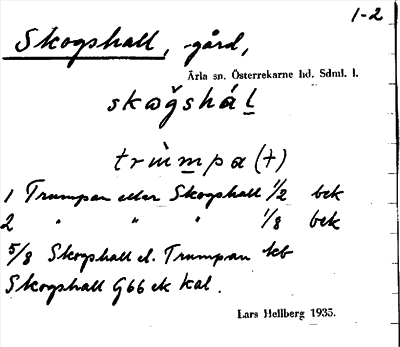 1-2
Skogshall, gård,
Ärla sn. Österrekarne hd. Sdml. l.
skωǧshál
trùmpa (+)
1 Trumpan eller Skogshall 1/2 bek
2 " " " 1/8 bek
5/8 Skogshall el. Trumpan kb
Skogshall G66 ek kal.
Lars Hellberg 1935.